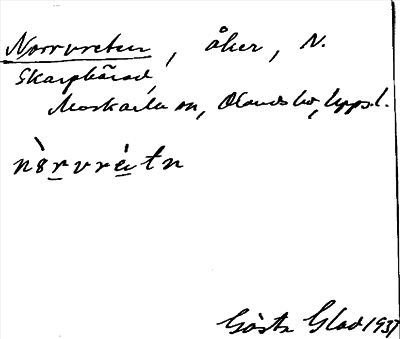 Norrvreten, åker, N.
Skarphärad,
Morkarla sn, Olands hd, Upps. l.
nòrvrètn
Gösta Glad 1937